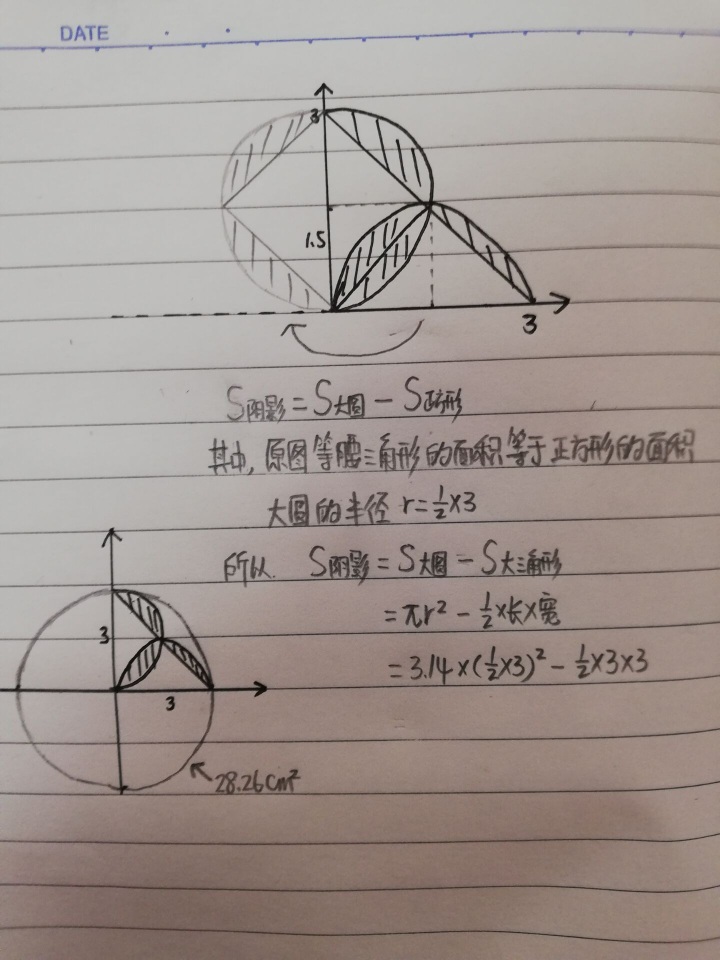 DATE
3
1.5
3
S阴影=S大圆-S正方形
其中,原图等腰三角形的面积等于正方形的面积
大圆的半径 r=½×3
所以 S阴影=S大圆-S大三角形
=πr²-½×长×宽
=3.14×(½×3)²-½×3×3
3
3
28.26cm²